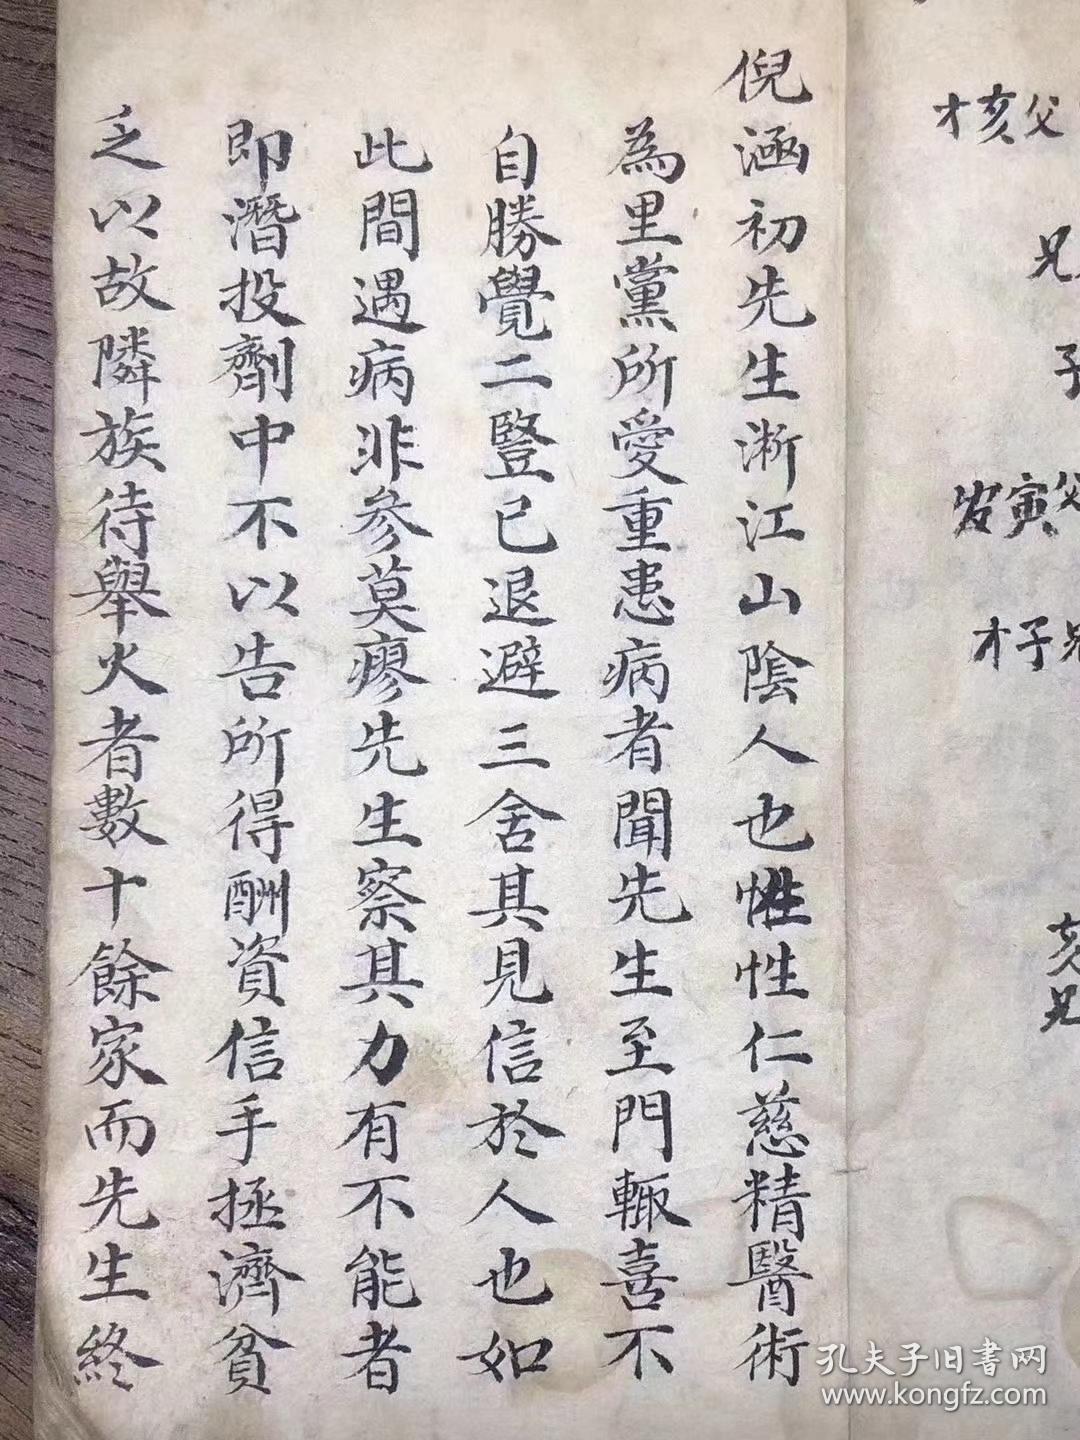 才亥父
兄
子
寅父
才子兄
亥
兄
倪涵初先生淅江山陰人也性性仁慈精醫術
為里黨所愛重患病者聞先生至門輙喜不
自勝覺二豎已退避三舍其見信於人也如
此間遇病非參莫瘳先生察其力有不能者
即潛投劑中不以告所得酬資信手拯濟貧
乏以故隣族待舉火者數十餘家而先生終
孔夫子旧書网
www.kongfz.com